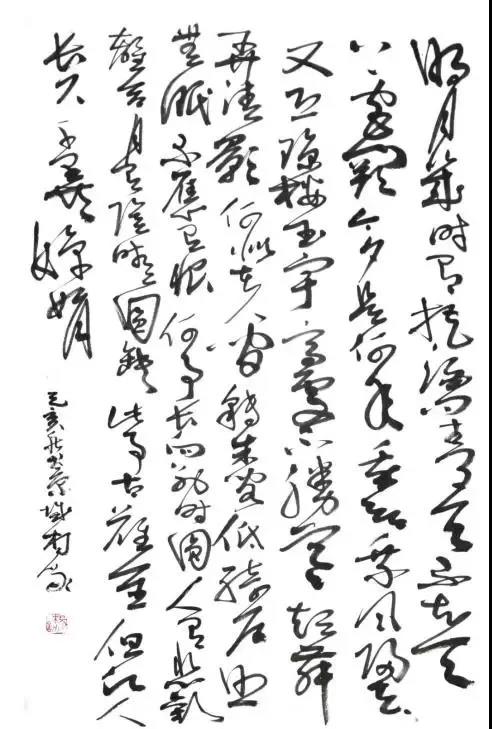 明月幾時有把酒問青天不知天
上宮闕今夕是何年我欲乘風歸去
又恐瓊樓玉宇高處不勝寒起舞
弄清影何似在人間轉朱閣低綺戶照
無眠不應有恨何事長向別時圓人有悲歡
離合月有陰晴圓缺此事古難全但願人
長久千里共嬋娟
己亥秋京城村